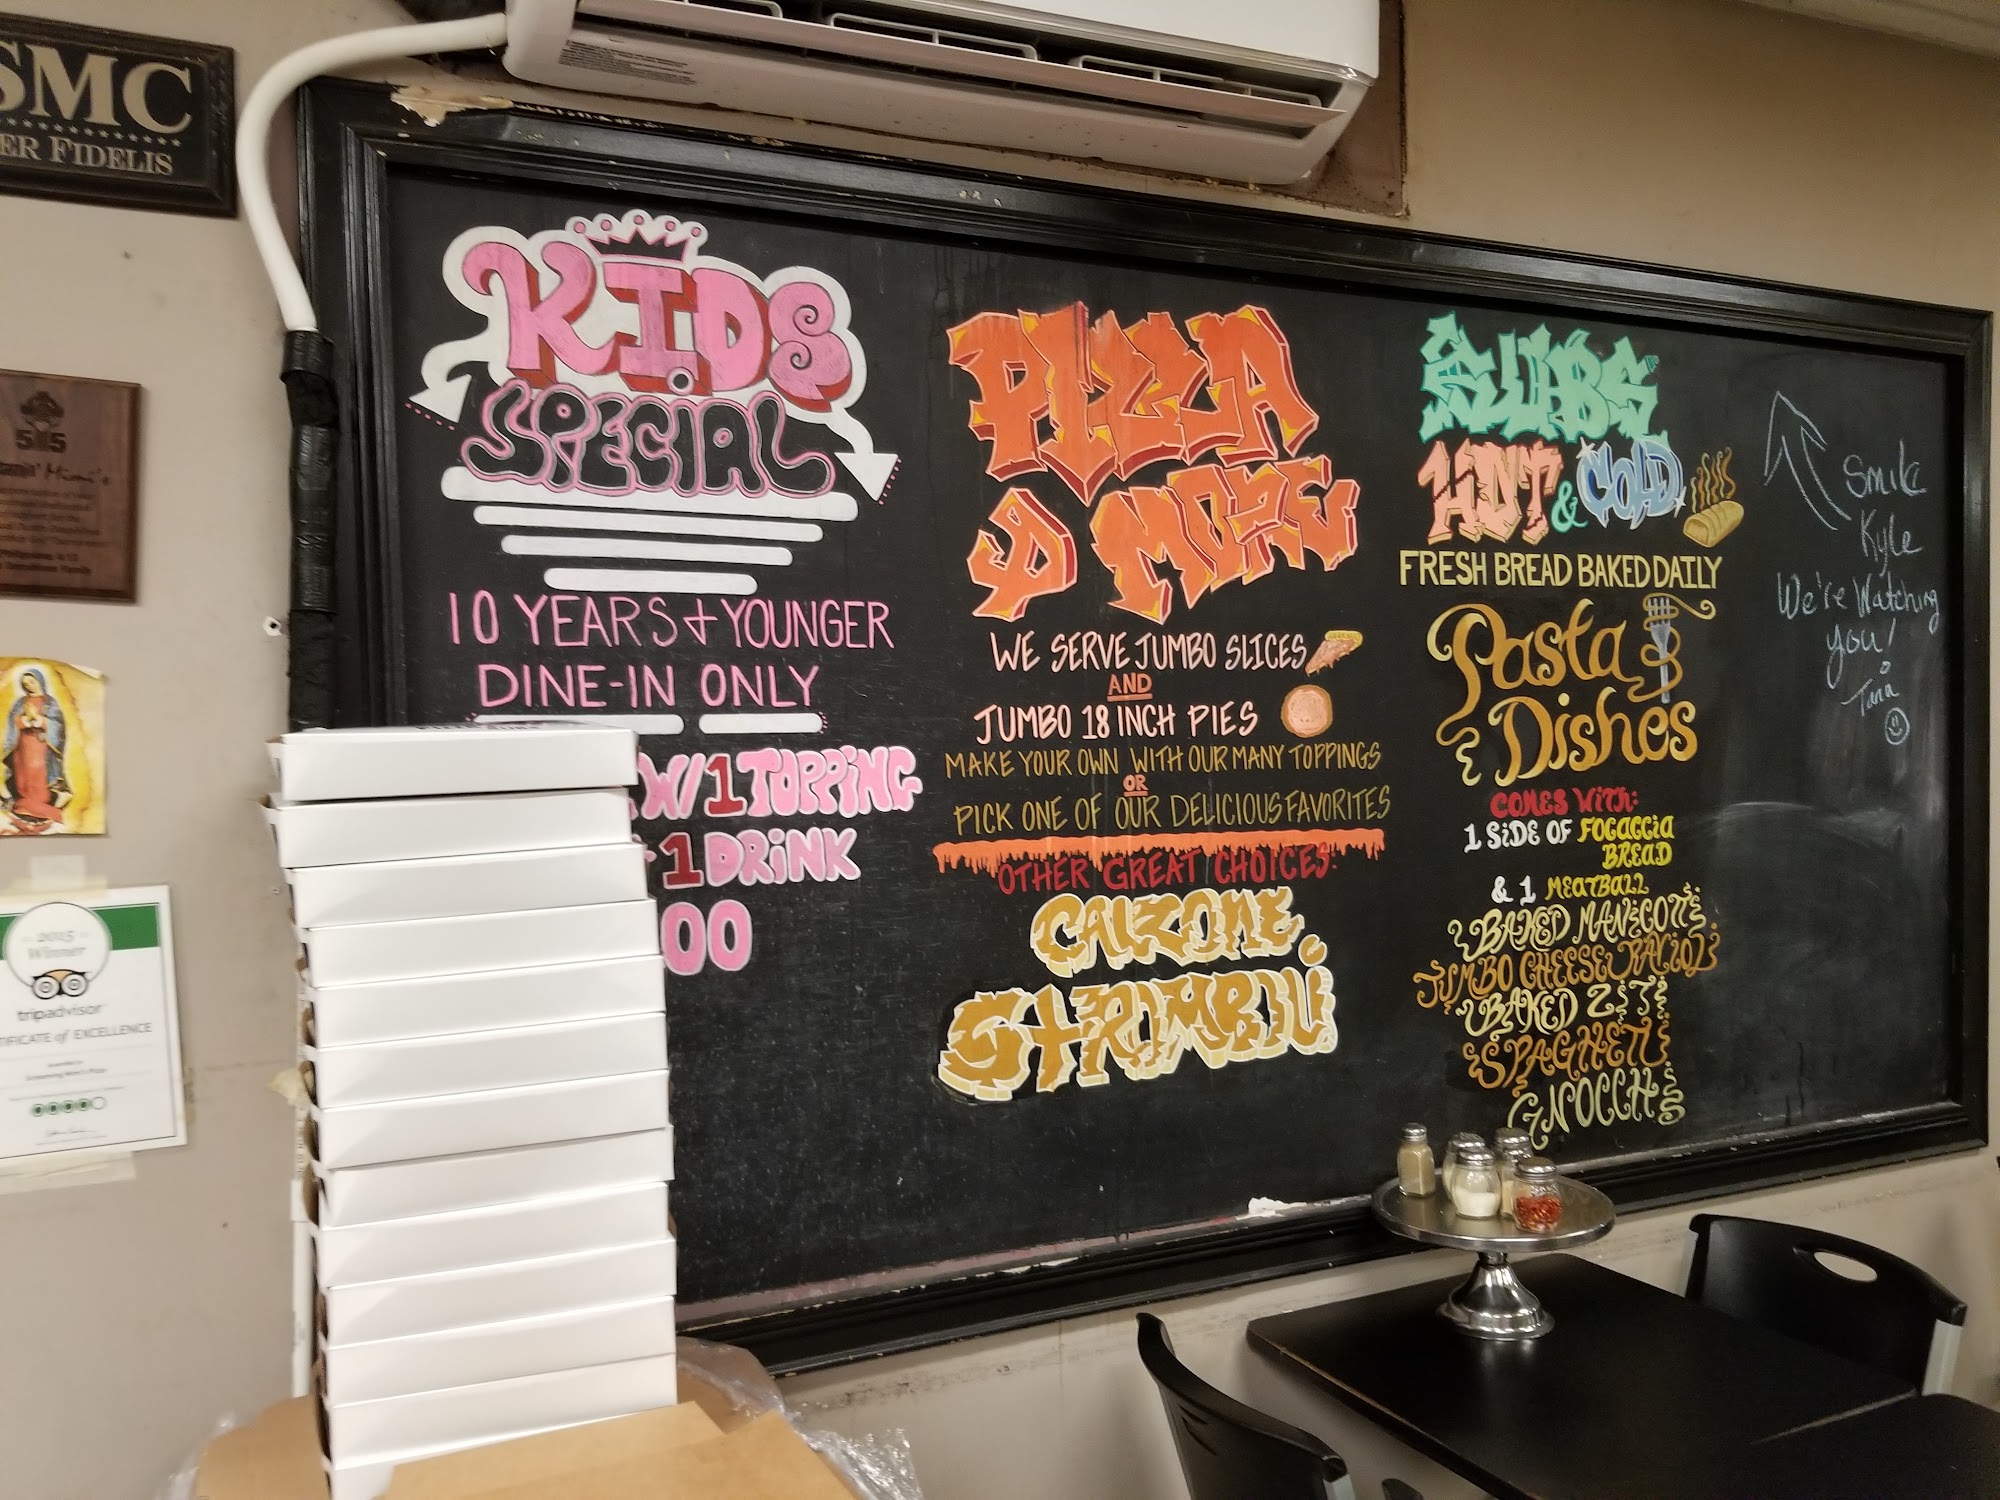 SMC
FIDELIS
2015
Winner
tripadvisor
of EXCELLENCE
KIDS
SPECIAL
10 YEARS + YOUNGER
DINE-IN ONLY
W/ 1 TOPPING
1 DRINK
00
PIZZA
& MORE
WE SERVE JUMBO SLICES
AND
JUMBO 18 INCH PIES
MAKE YOUR OWN WITH OUR MANY TOPPINGS
OR
PICK ONE OF OUR DELICIOUS FAVORITES
OTHER GREAT CHOICES:
CALZONE
STROMBOLI
SUBS
HOT & COLD
FRESH BREAD BAKED DAILY
Pasta
Dishes
COMES WITH:
1 SIDE OF FOGACCIA
BREAD
& 1 MEATBALL
BAKED MANICOTTI
JUMBO CHEESE RAVIOLI
BAKED ZITI
SPAGHETTI
GNOCCHI
Smile
Kyle
We're Watching
you!
Tina